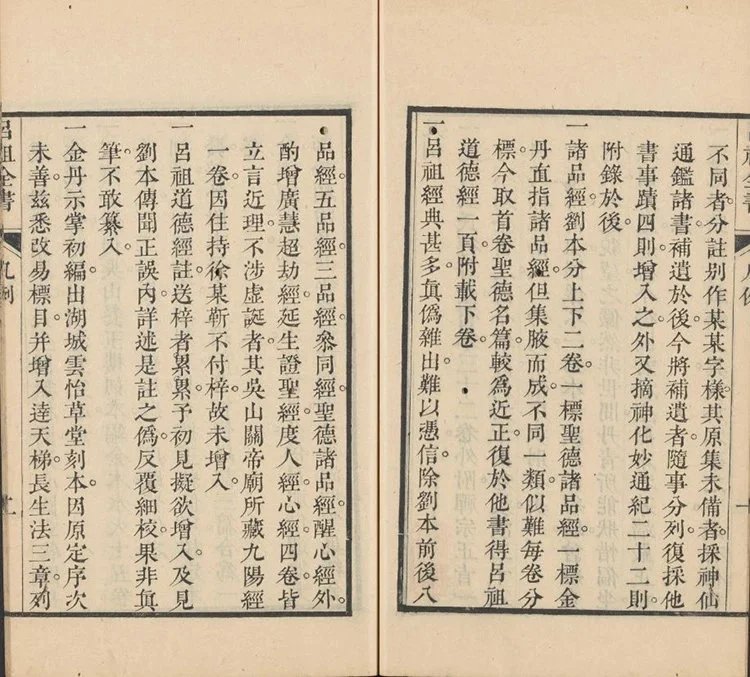 不同者分註别作某某字樣其原集未備者採神仙
通鑑諸書補遺於後今將補遺者隨事分列復採他
書事蹟四則增入之外又摘神化妙通紀二十二則
附錄於後
一諸品經劉本分上下二卷一標聖德諸品經一標金
丹直指諸品經但集腋而成不同一類似難每卷分
標今取首卷聖德名篇較爲近正復於他書得呂祖
道德經一頁附載下卷
一呂祖經典甚多眞僞雜出難以憑信除劉本前後八
呂祖全書
凡例
品經五品經三品經叅同經聖德諸品經醒心經外
酌增廣慧超劫經延生證聖經度人經心經四卷皆
立言近理不涉虛誕者其吳山關帝廟所藏九陽經
一卷因住持徐某靳不付梓故未增入
一呂祖道德經註送梓者累累予初見擬欲增入及見
劉本傳聞正誤內詳述是註之僞反覆細校果非眞
筆不敢纂入
一金丹示掌初編出湖城雲怡草堂刻本因原定序次
未善茲悉改易標目并增入達天梯長生法三章列